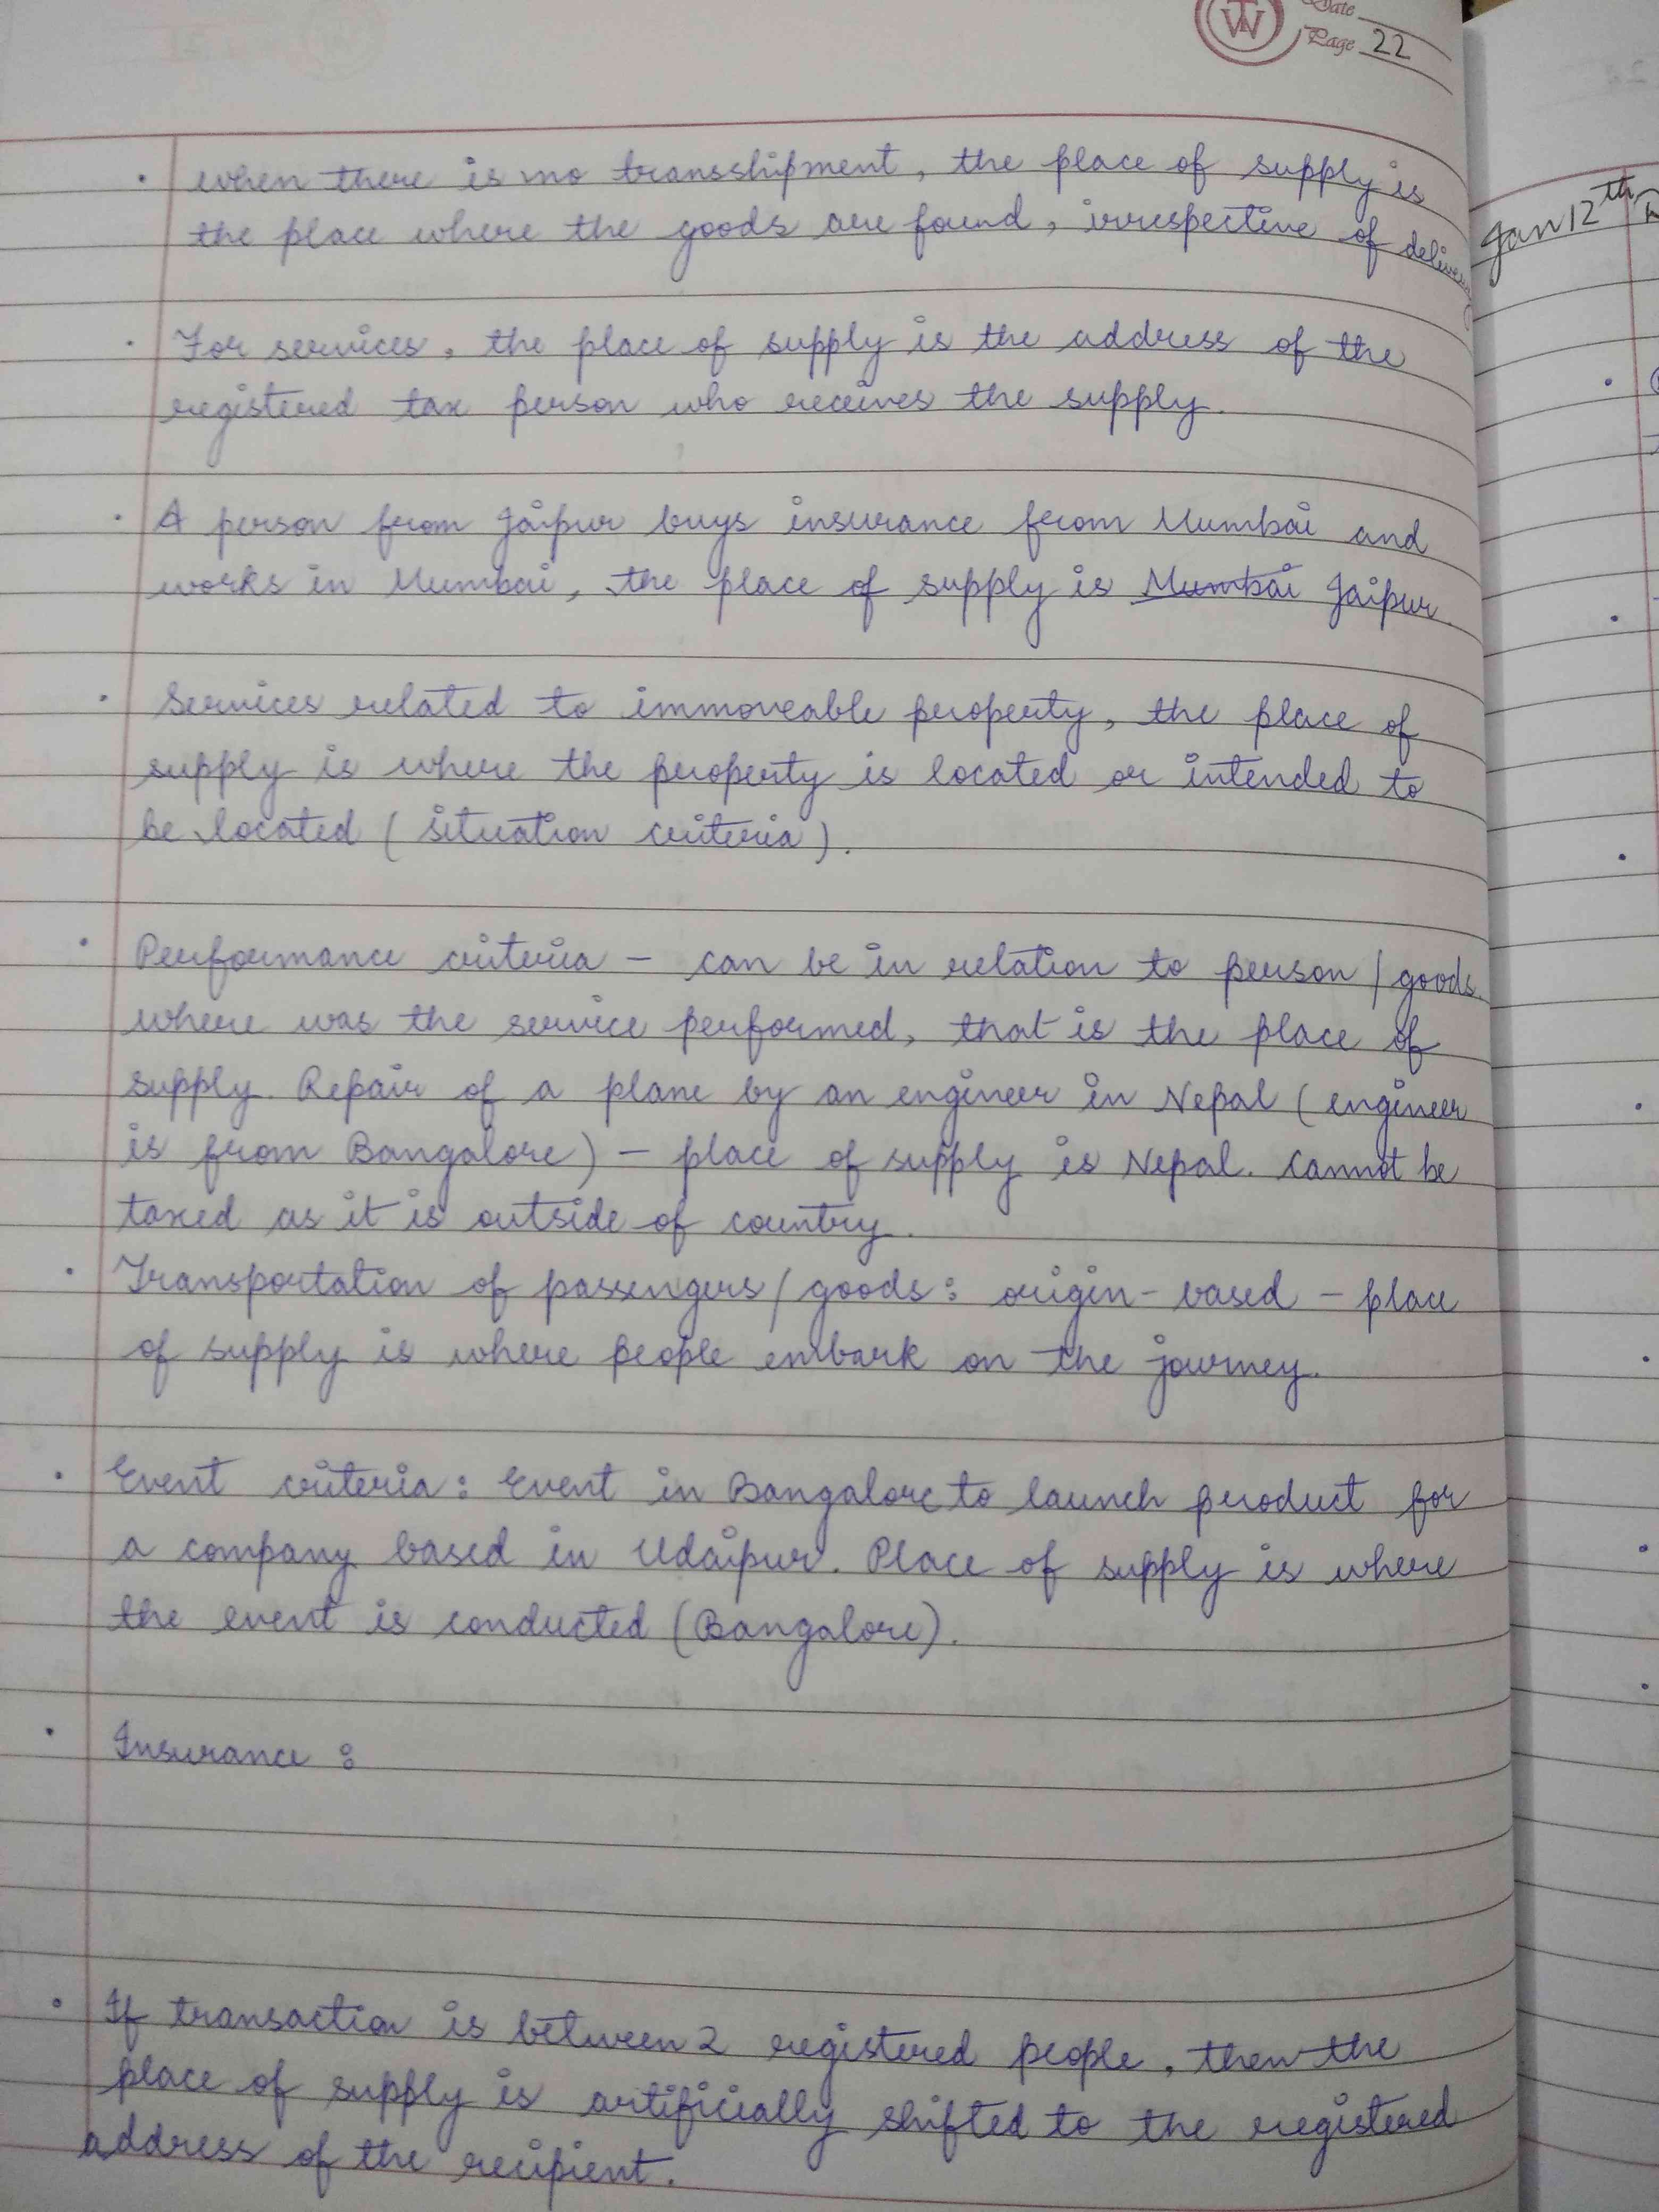 Date
Page 22
• when there is no transshipment, the place of supply is
the place where the goods are found, irrespective of delivery
• For services, the place of supply is the address of the
registered tax person who receives the supply.
• A person from Jaipur buys insurance from Mumbai and
works in Mumbai, the place of supply is Mumbai Jaipur.
• Services related to immoveable property, the place of
supply is where the property is located or intended to
be located (situation criteria).
• Performance criteria - can be in relation to person / goods.
where was the service performed, that is the place of
supply. Repair of a plane by an engineer in Nepal (engineer
is from Bangalore) - place of supply is Nepal. Cannot be
taxed as it is outside of country.
• Transportation of passengers / goods: origin-based - place
of supply is where people embark on the journey.
• Event criteria: Event in Bangalore to launch product for
a company based in Udaipur. Place of supply is where
the event is conducted (Bangalore).
• Insurance :
• If transaction is between 2 registered people, then the
place of supply is artificially shifted to the registered
address of the recipient.
Jan 12th